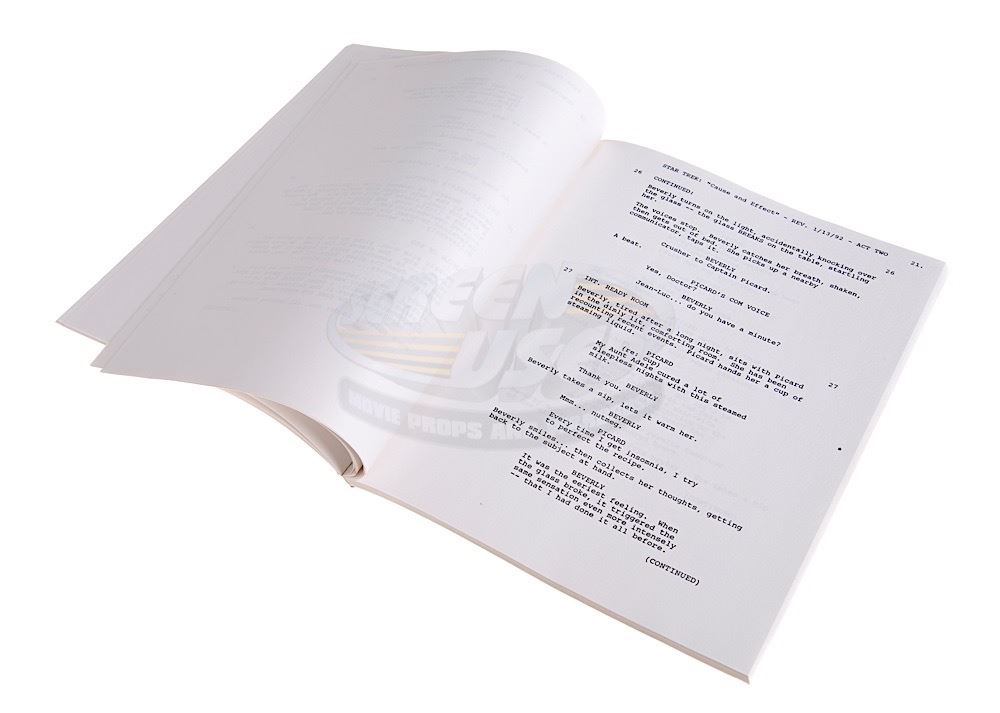 STAR TREK: "Cause and Effect" - REV. 1/13/92 - ACT TWO 21.
26 CONTINUED: 26
Beverly turns on the light, accidentally knocking over
the glass -- the glass BREAKS on the table, startling
her.
The voices stop. Beverly catches her breath, shaken,
then gets out of bed. She picks up a nearby
communicator, taps it.
BEVERLY
Crusher to Captain Picard.
A beat.
PICARD'S COM VOICE
Yes, Doctor?
BEVERLY
Jean-Luc... do you have a minute?
27 INT. READY ROOM 27
Beverly, tired after a long night, sits with Picard
in the dimly lit, comforting room. She has been
recounting recent events. Picard hands her a cup of
steaming liquid.
PICARD
(re: cup)
My Aunt Adele cured a lot of
sleepless nights with this steamed
milk.
BEVERLY
Thank you.
Beverly takes a sip, lets it warm her.
BEVERLY
Mmm... nutmeg.
PICARD
Every time I get insomnia, I try
to perfect the recipe.
Beverly smiles... then collects her thoughts, getting
back to the subject at hand.
BEVERLY
It was the eeriest feeling. When
the glass broke, it triggered the
same sensation even more intensely
-- that I had done it all before.
(CONTINUED)
MOVIE PROPS